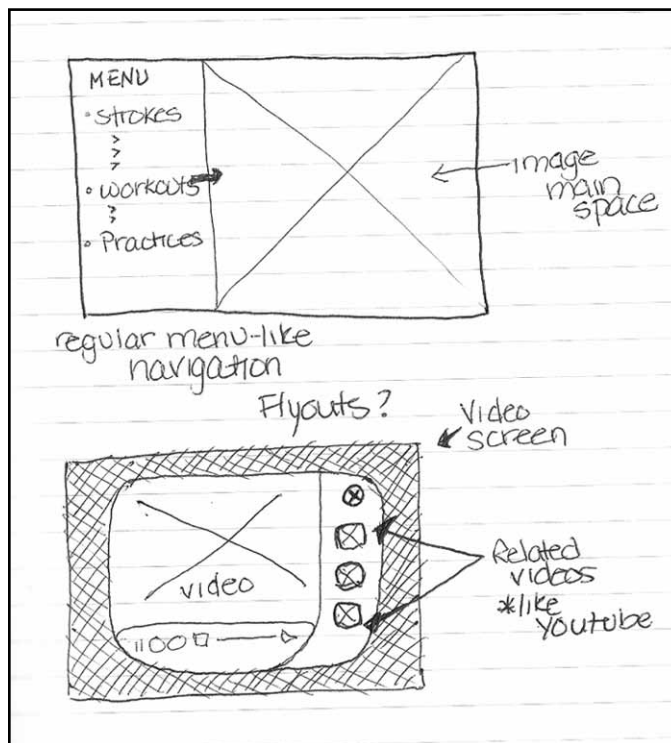 MENU
• Strokes
>
>
>
• Workouts
>
>
• Practices
image
main
space
regular menu-like
navigation
Flyouts?
Video
screen
video
Related
videos
*like
Youtube